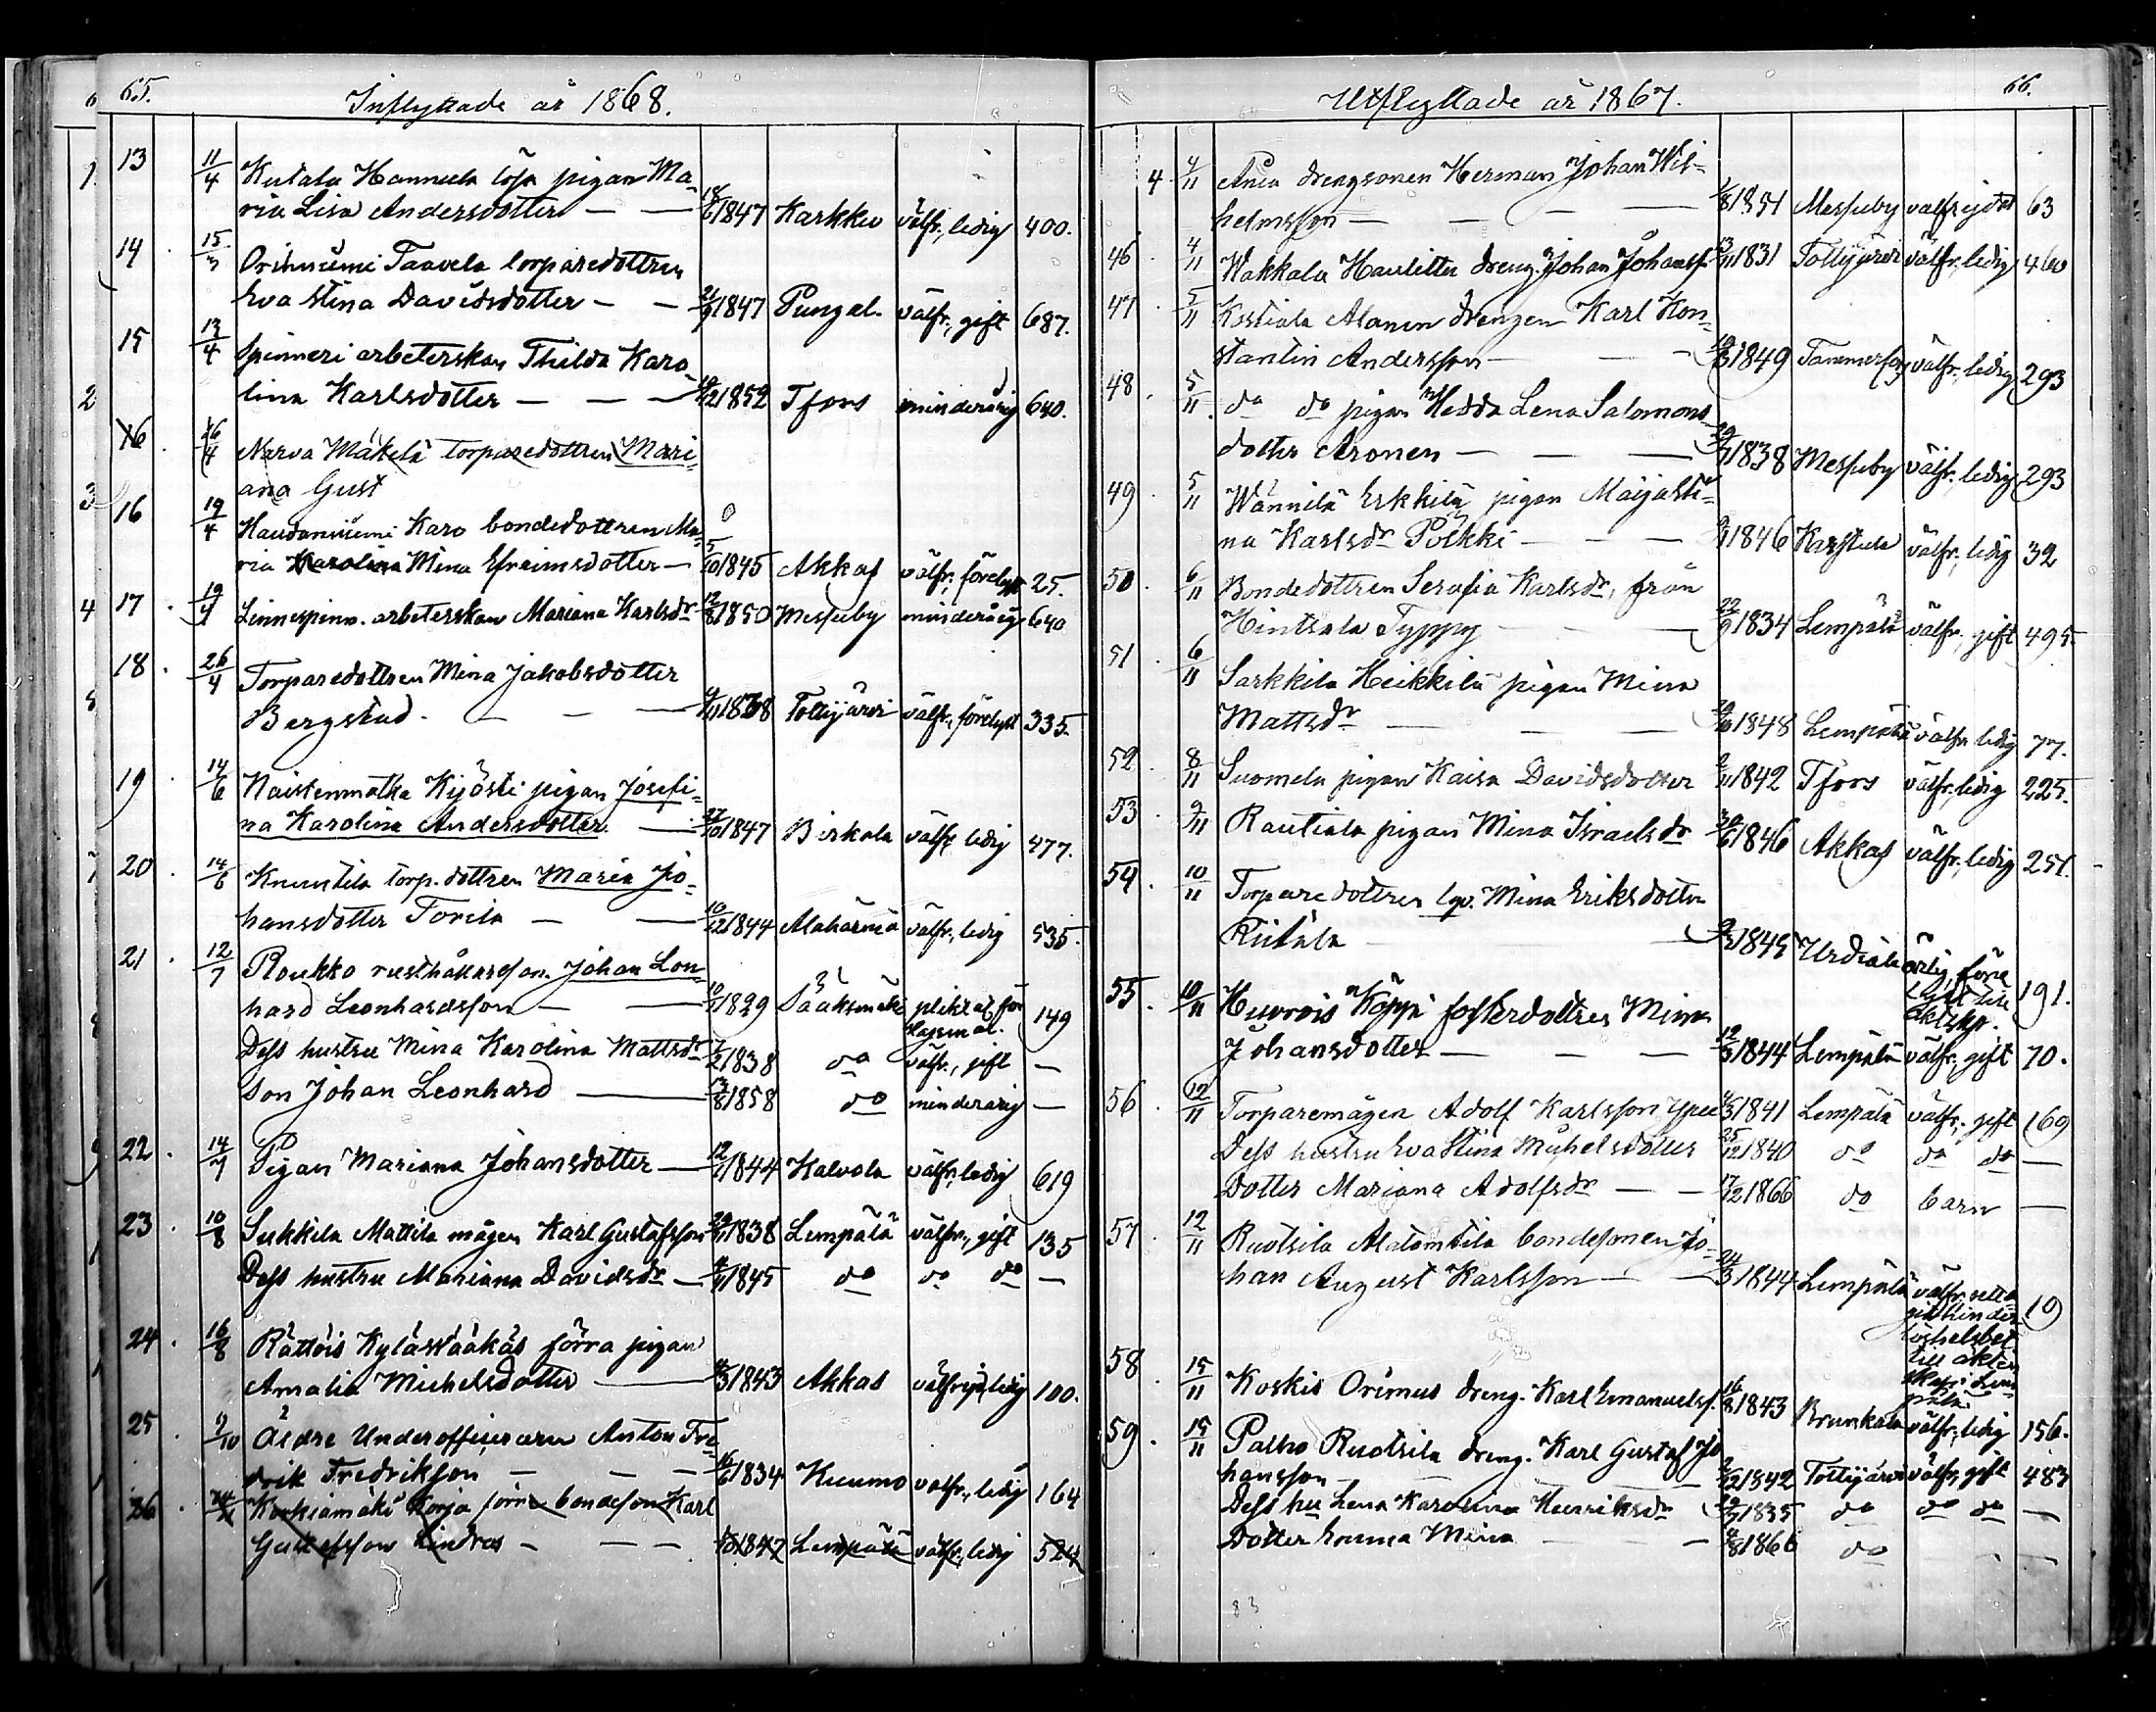 65.
Inflyttade år 1868.
13 11/4 Kutala Hannula lösa pigan Ma-
ria Lisa Andersdotter — — 1847 Karkku välfr., ledig 400.
14 15/3 Orihniemi Taavela torparedottren
Eva Stina Davidsdotter — — 1847 Pungal. välfr., gift 687.
15 13/4 Spinneri arbeterskan Thilda Karo-
lina Karlsdotter — — — 1852 Tfors minderårig 640.
16 16/4 Narva Mäkelä torparedottren Mari-
ana Gust
16 19/4 Haudanniemi Karo bondedottren Ma-
ria Karolina Mina Efraimsdotter — 5/10 1845 Akkas välfr., förelyst 25.
17 19/4 Linnespinn. arbeterskan Mariana Karlsdr 12/8 1850 Messuby minderårig 640
18. 26/4 Torparedottren Mina Jakobsdotter
Bergstad. — — — 1838 Tottijärvi välfr., förelyst 335.
19 14/6 Naistenmatka Kyösti pigan Josefi-
na Karolina Andersdotter — 27/10 1847 Birkala välfr. ledig 477.
20 14/6 Knuutila torp. dottren Maria Jo-
hansdotter Torila — — 10/12 1844 Alahärmä välfr., ledig 535.
21 12/7 Roukko rusthållareson Johan Leon-
hard Leonhardsson — — 1829 Sääksmäki
149
Dess hustru Mina Karolina Mattsdr 1838 do välfr., gift —
Son Johan Leonhard — 1858 do minderårig —
22. 14/7 Pigan Mariana Johansdotter — 1844 Kalvola välfr., ledig 619
23 10/8 Sukkila Mattila mågen Karl Gustafsson 1838 Lempälä välfr., gift 135
Dess hustru Mariana Davidsdr — 1845 do do do —
24. 16/8 Rättöis Kyläsvääkäs förra pigan
Amalia Michelsdotter — 1843 Akkas välfrejd, ledig 100.
25 9/10 Äldre Underofficeraren Anton Fre-
drik Fredriksson — — — 1834 Kuumo välfr., ledig 164
26 Korkiamäki Korja förra bondeson Karl
Gustafsson Lindros — — — 1847 Lempälä välfr., ledig 524
66.
Utflyttade år 1867.
4 4/11 Ania drengsonen Herman Johan Wil-
helmsson — — — — 1851 Messuby välfrejdad 63
46 4/11 Wakkala Hauletta dreng. Johan Johanss. 1831 Tottijärvi välfr., ledig 460
47 5/11 Kostiala Alanen drengen Karl Kon-
stantin Andersson — — — 1849 Tammerfors välfr., ledig 293
48. 5/11 do do pigan Hedda Lena Salomons-
dotter Aronen — — — 1838 Messuby välfr., ledig 293
49 5/11 Wännilä Erkkilä pigan Maijasti-
na Karlsdr Pölkki — — — 1846 Karstula välfr., ledig 32
50. 6/11 Bondedottren Serafia Karlsdr, från
Hintsala Typpy — — 1834 Lempälä välfr., gift 495.
51. 6/11 Sarkkila Heikkilä pigan Mina
Mattsdr — — — 1848 Lempälä välfr. ledig 77.
52. 8/11 Suomela pigan Kaisa Davidsdotter 1842 Tfors välfr., ledig 225.
53. 9/11 Rautiala pigan Mina Israelsdr 1846 Akkas välfr., ledig 251.
54. 10/11 Torparedottren Mina Eriksdotter
Riitala — — 1845 Urdiala
191.
55. 10/11 Huvrois Köppi fosterdottren Mina
Johansdotter — — — 1844 Lempälä välfr., gift 70.
56 12/11 Torparemågen Adolf Karlsson 1841 Lempälä välfr., gift 169
Dess hustru Eva Stina Michelsdotter 25/12 1840 do do do —
Dotter Mariana Adolfsdr — — 17/12 1866 do barn —
57. 12/11 Ruotsila Alatomtila bondesonen Jo-
han August Karlsson — — 24/3 1844 Lempälä
19
58 15/11 Koskis Orimus dreng. Karl Emanuelss. 16/8 1843 välfr., ledig 156.
59. 15/11 Palho Ruotsila dreng. Karl Gustaf Jo-
hansson — — — 1842 Tottijärvi välfr., gift 483
Dess hu Lena Karolina Henriksdr 1835 do do do —
Dotter Emma Mina — — 1866 do — —
83